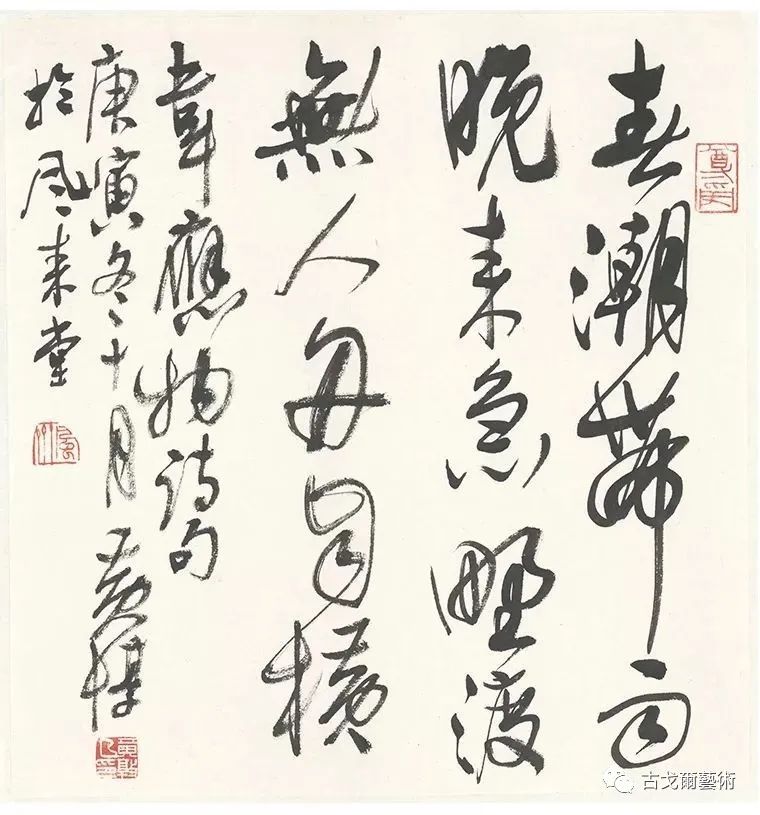 春潮帶雨
晚来急野渡
無人舟自横
韋應物詩句
庚寅冬十月黄惇
於風来堂
古戈爾藝術